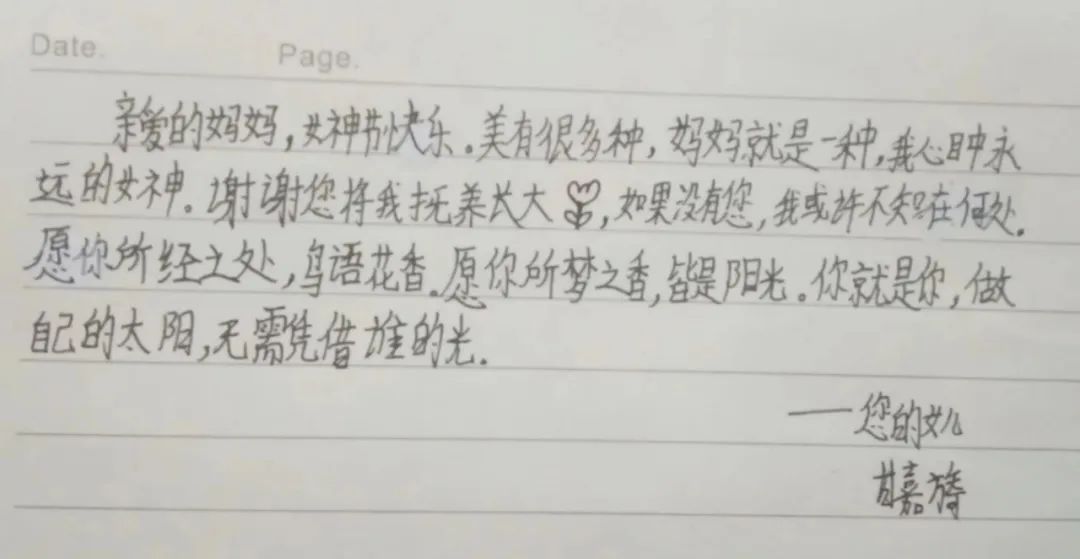 Date. Page.
亲爱的妈妈,女神节快乐。美有很多种,妈妈就是一种,我心目中永
远的女神。谢谢您将我抚养长大,如果没有您,我或许不知在何处.
愿你所经之处,鸟语花香.愿你所梦之香,皆是阳光。你就是你,做
自己的太阳,无需凭借谁的光.
——您的女儿
甘嘉